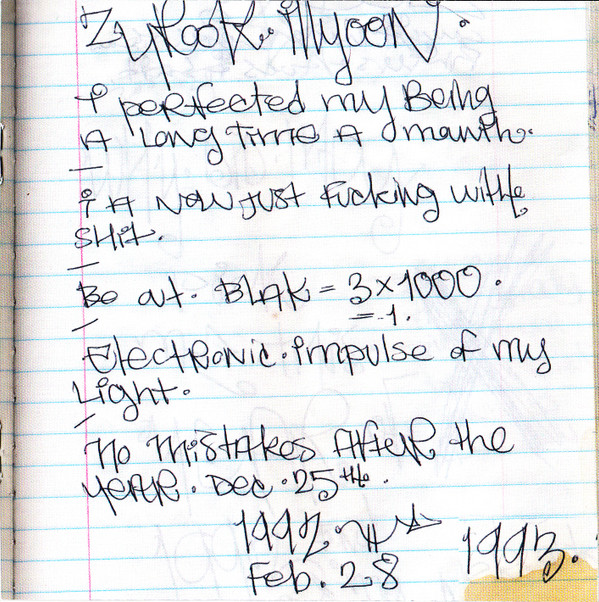 I perfected my Being
A Long Time A
I A Now just Fucking withe
SHit.
Be at. BLAK = 3 x 1000.
=.1.
Electronic. impulse of my
Light.
No Mistakes AFteR the
yeaR. Dec. 25the.
1992 1993.
Feb. 28